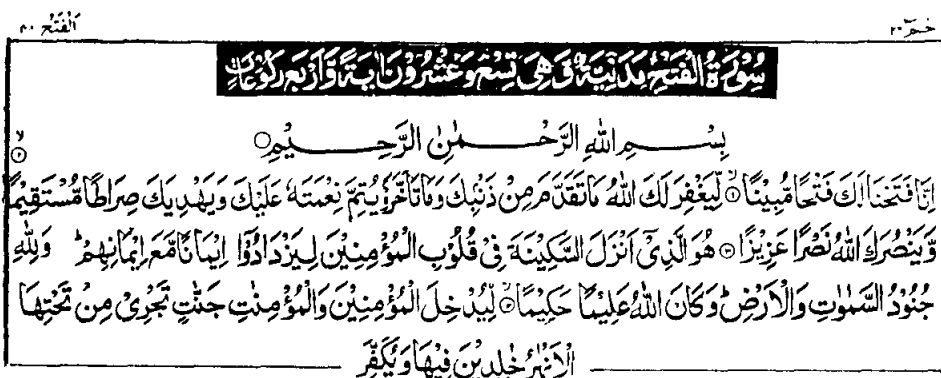 حٰمٓ ٢٦ الْفَتْح ٤٨
سُوْرَةُ الْفَتْحِ مَدَنِيَّةٌ وَّهِيَ تِسْعٌ وَّعِشْرُوْنَ اٰيَةً وَّاَرْبَعُ رُكُوْعَاتٍ
بِسْمِ اللّٰهِ الرَّحْمٰنِ الرَّحِيْمِ ○
اِنَّا فَتَحْنَا لَكَ فَتْحًا مُّبِيْنًا ۙ﴿١﴾ لِّيَغْفِرَ لَكَ اللّٰهُ مَا تَقَدَّمَ مِنْ ذَنْۢبِكَ وَمَا تَاَخَّرَ وَيُتِمَّ نِعْمَتَهٗ عَلَيْكَ وَيَهْدِيَكَ صِرَاطًا مُّسْتَقِيْمًا ۙ﴿٢﴾
وَّيَنْصُرَكَ اللّٰهُ نَصْرًا عَزِيْزًا ﴿٣﴾ هُوَ الَّذِيْٓ اَنْزَلَ السَّكِيْنَةَ فِيْ قُلُوْبِ الْمُؤْمِنِيْنَ لِيَزْدَادُوْٓا اِيْمَانًا مَّعَ اِيْمَانِهِمْ ؕ وَلِلّٰهِ
جُنُوْدُ السَّمٰوٰتِ وَالْاَرْضِ ؕ وَكَانَ اللّٰهُ عَلِيْمًا حَكِيْمًا ۙ﴿٤﴾ لِّيُدْخِلَ الْمُؤْمِنِيْنَ وَالْمُؤْمِنٰتِ جَنّٰتٍ تَجْرِيْ مِنْ تَحْتِهَا
الْاَنْهٰرُ خٰلِدِيْنَ فِيْهَا وَيُكَفِّرَ